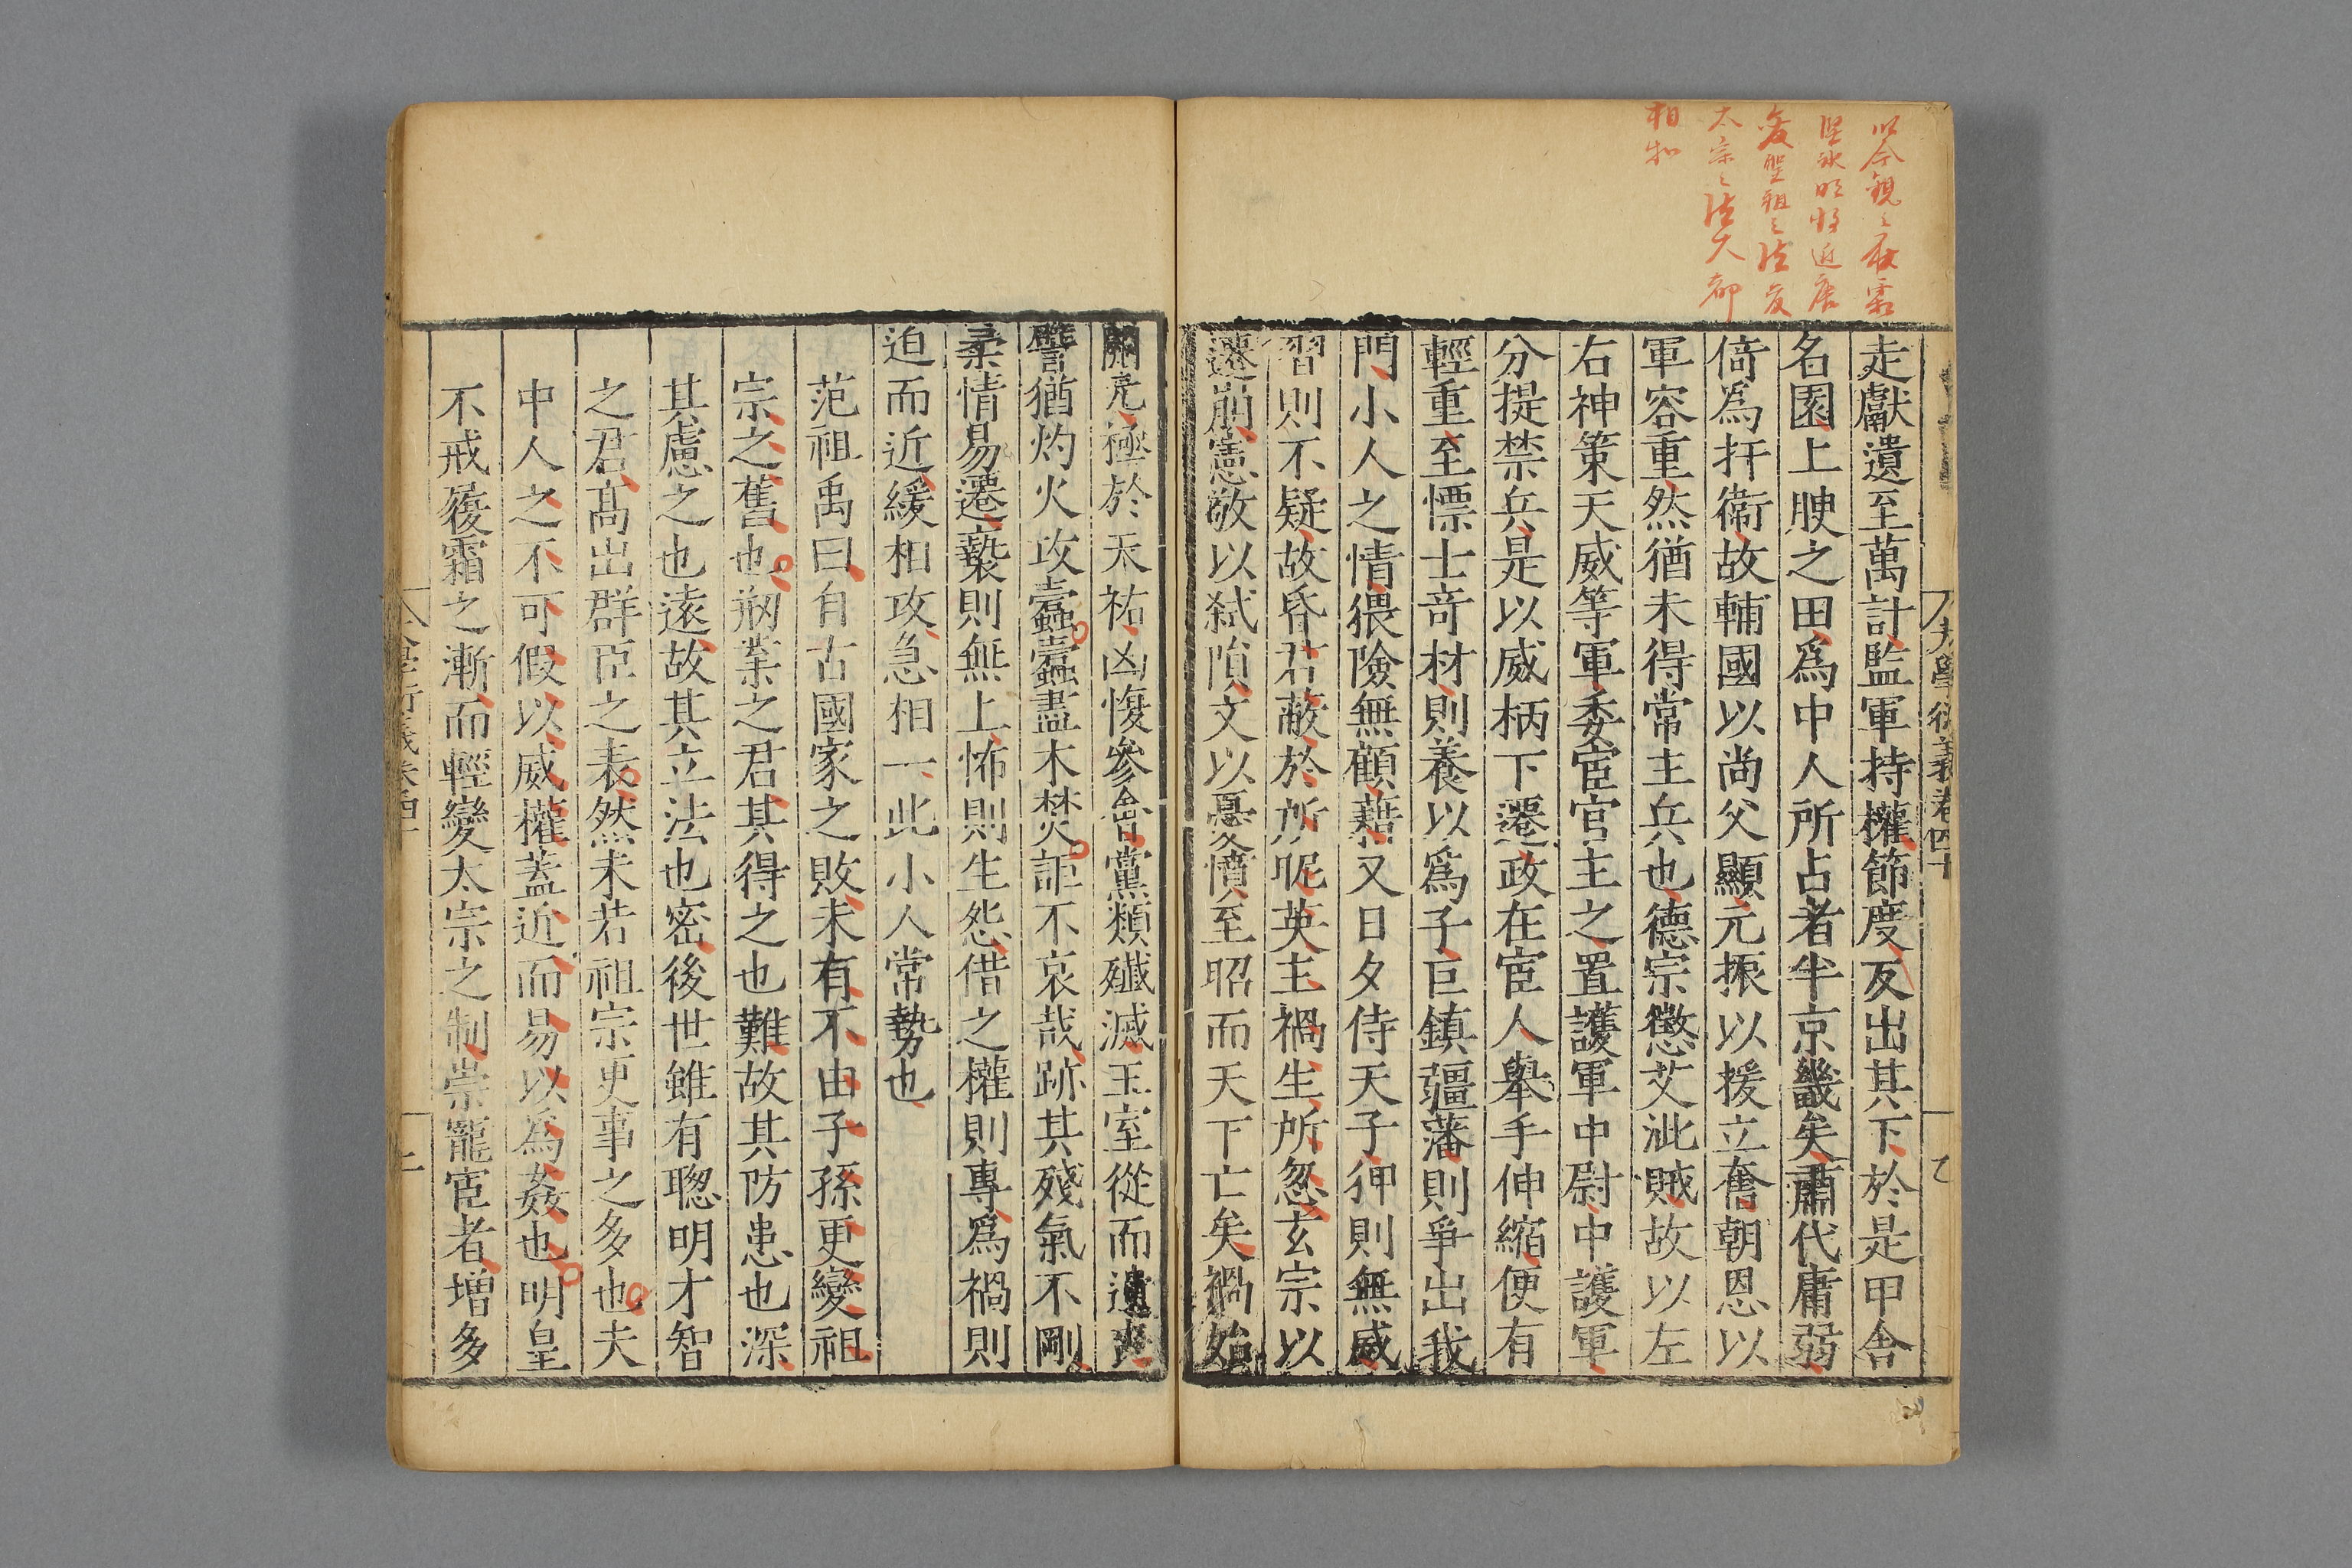 以今觀之履霜
堅冰明將近底
変聖祖之法度
太宗之法大都
相和
大學衍義卷四十
走獻遺至萬計監軍持權節度反出其下於是甲舍
名園上腴之田爲中人所占者半京畿矣肅代庸弱
倚爲扞衛故輔國以尚父顯元振以援立奮朝恩以
軍容重然猶未得常主兵也德宗懲艾泚賊故以左
右神策天威等軍委宦官主之置護軍中尉中護軍
分提禁兵是以威柄下遷政在宦人舉手伸縮便有
輕重至慓士奇材則養以爲子巨鎮疆藩則爭出我
門小人之情猥險無顧藉又日夕侍天子狎則無威
習則不疑故昏君蔽於所昵英主禍生所忽玄宗以
遷崩憲敬以弒隕文以憂憤至昭而天下亡矣禍始
開元極於天祐凶愎參會黨類殲滅王室從而潰喪
譬猶灼火攻蠹蠹盡木焚詎不哀哉跡其殘氣不剛
柔情易遷褻則無上怖則生怨借之權則專爲禍則
迫而近緩相攻急相一此小人常勢也
范祖禹曰自古國家之敗未有不由子孫更變祖
宗之舊也刱業之君其得之也難故其防患也深
其慮之也遠故其立法也密後世雖有聰明才智
之君高出群臣之表然未若祖宗更事之多也夫
中人之不可假以威權蓋近而易以為姦也明皇
不戒履霜之漸而輕變太宗之制崇寵宦者增多